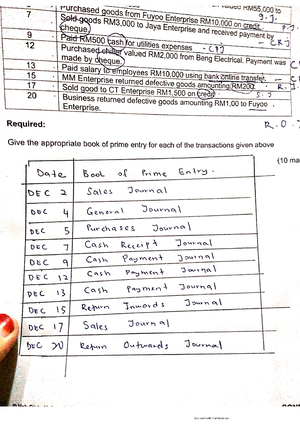 valued RM55,000 to
Purchased goods from Fuyoo Enterprise RM10,000 on credit.
7 Sold goods RM3,000 to Jaya Enterprise and received payment by
cheque.
9 Paid RM500 cash for utilities expenses - CPJ
12 Purchased chiller valued RM2,000 from Beng Electrical. Payment was
made by cheque.
13 Paid salary to employees RM10,000 using bank online transfer.
15 MM Enterprise returned defective goods amounting RM200.
17 Sold good to CT Enterprise RM1,500 on credit S.J
20 Business returned defective goods amounting RM1,00 to Fuyoo
Enterprise.
Required:
R.O.
Give the appropriate book of prime entry for each of the transactions given above
(10 ma
Date Book of Prime Entry.
DEC 2 Sales Journal
DEC 4 General Journal
DEC 5 Purchases Journal
DEC 7 Cash Receipt Journal
DEC 9 Cash Payment Journal
DEC 12 Cash Payment Journal
DEC 13 Cash Payment Journal
DEC 15 Return Inwards Journal
DEC 17 Sales Journal
DEC 20 Return Outwards Journal